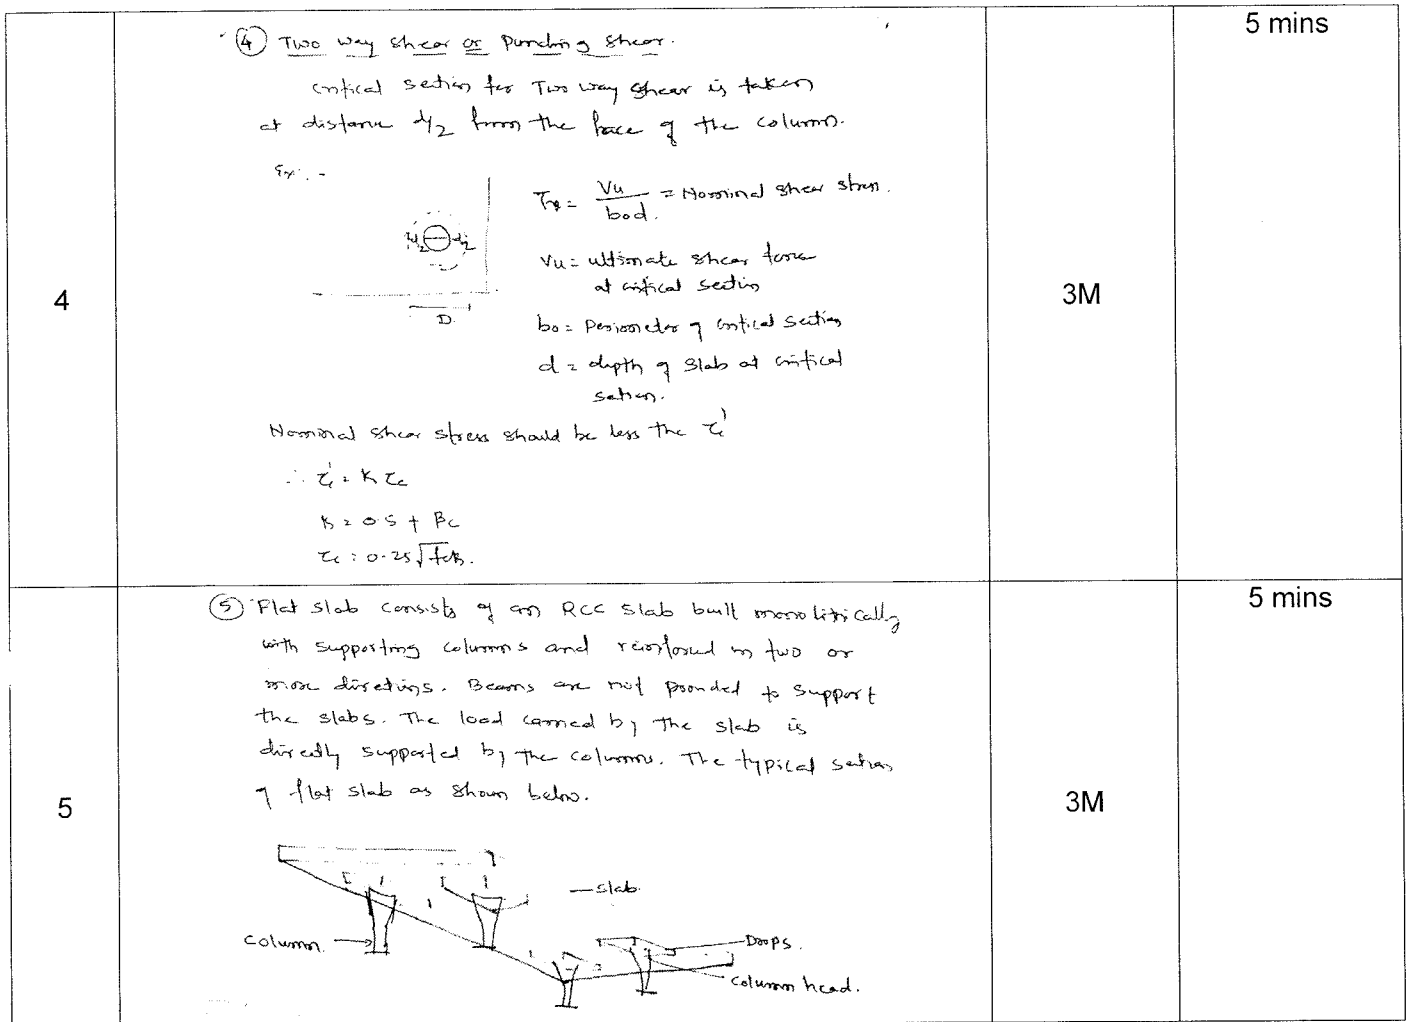 5 mins
4
3M
④ Two way shear or Punching shear.
Critical section for Two way shear is taken
at distance d/2 from the face of the column.
Ex: -
d/2 d/2
D
τv = Vu / bod. = Nominal shear stress.
Vu = ultimate shear force
at critical section
bo = Perimeter of critical section
d = depth of slab at critical
section.
Nominal shear stress should be less the τc'
∴ τc' = K τc
K = 0.5 + βc
τc = 0.25 √fck.
5 mins
5
3M
⑤ Flat slab consists of an RCC slab built monolithically
with supporting columns and reinforced in two or
more directions. Beams are not provided to support
the slabs. The load carried by the slab is
directly supported by the columns. The typical section
of flat slab as shown below.
slab.
column.
Drops.
column head.